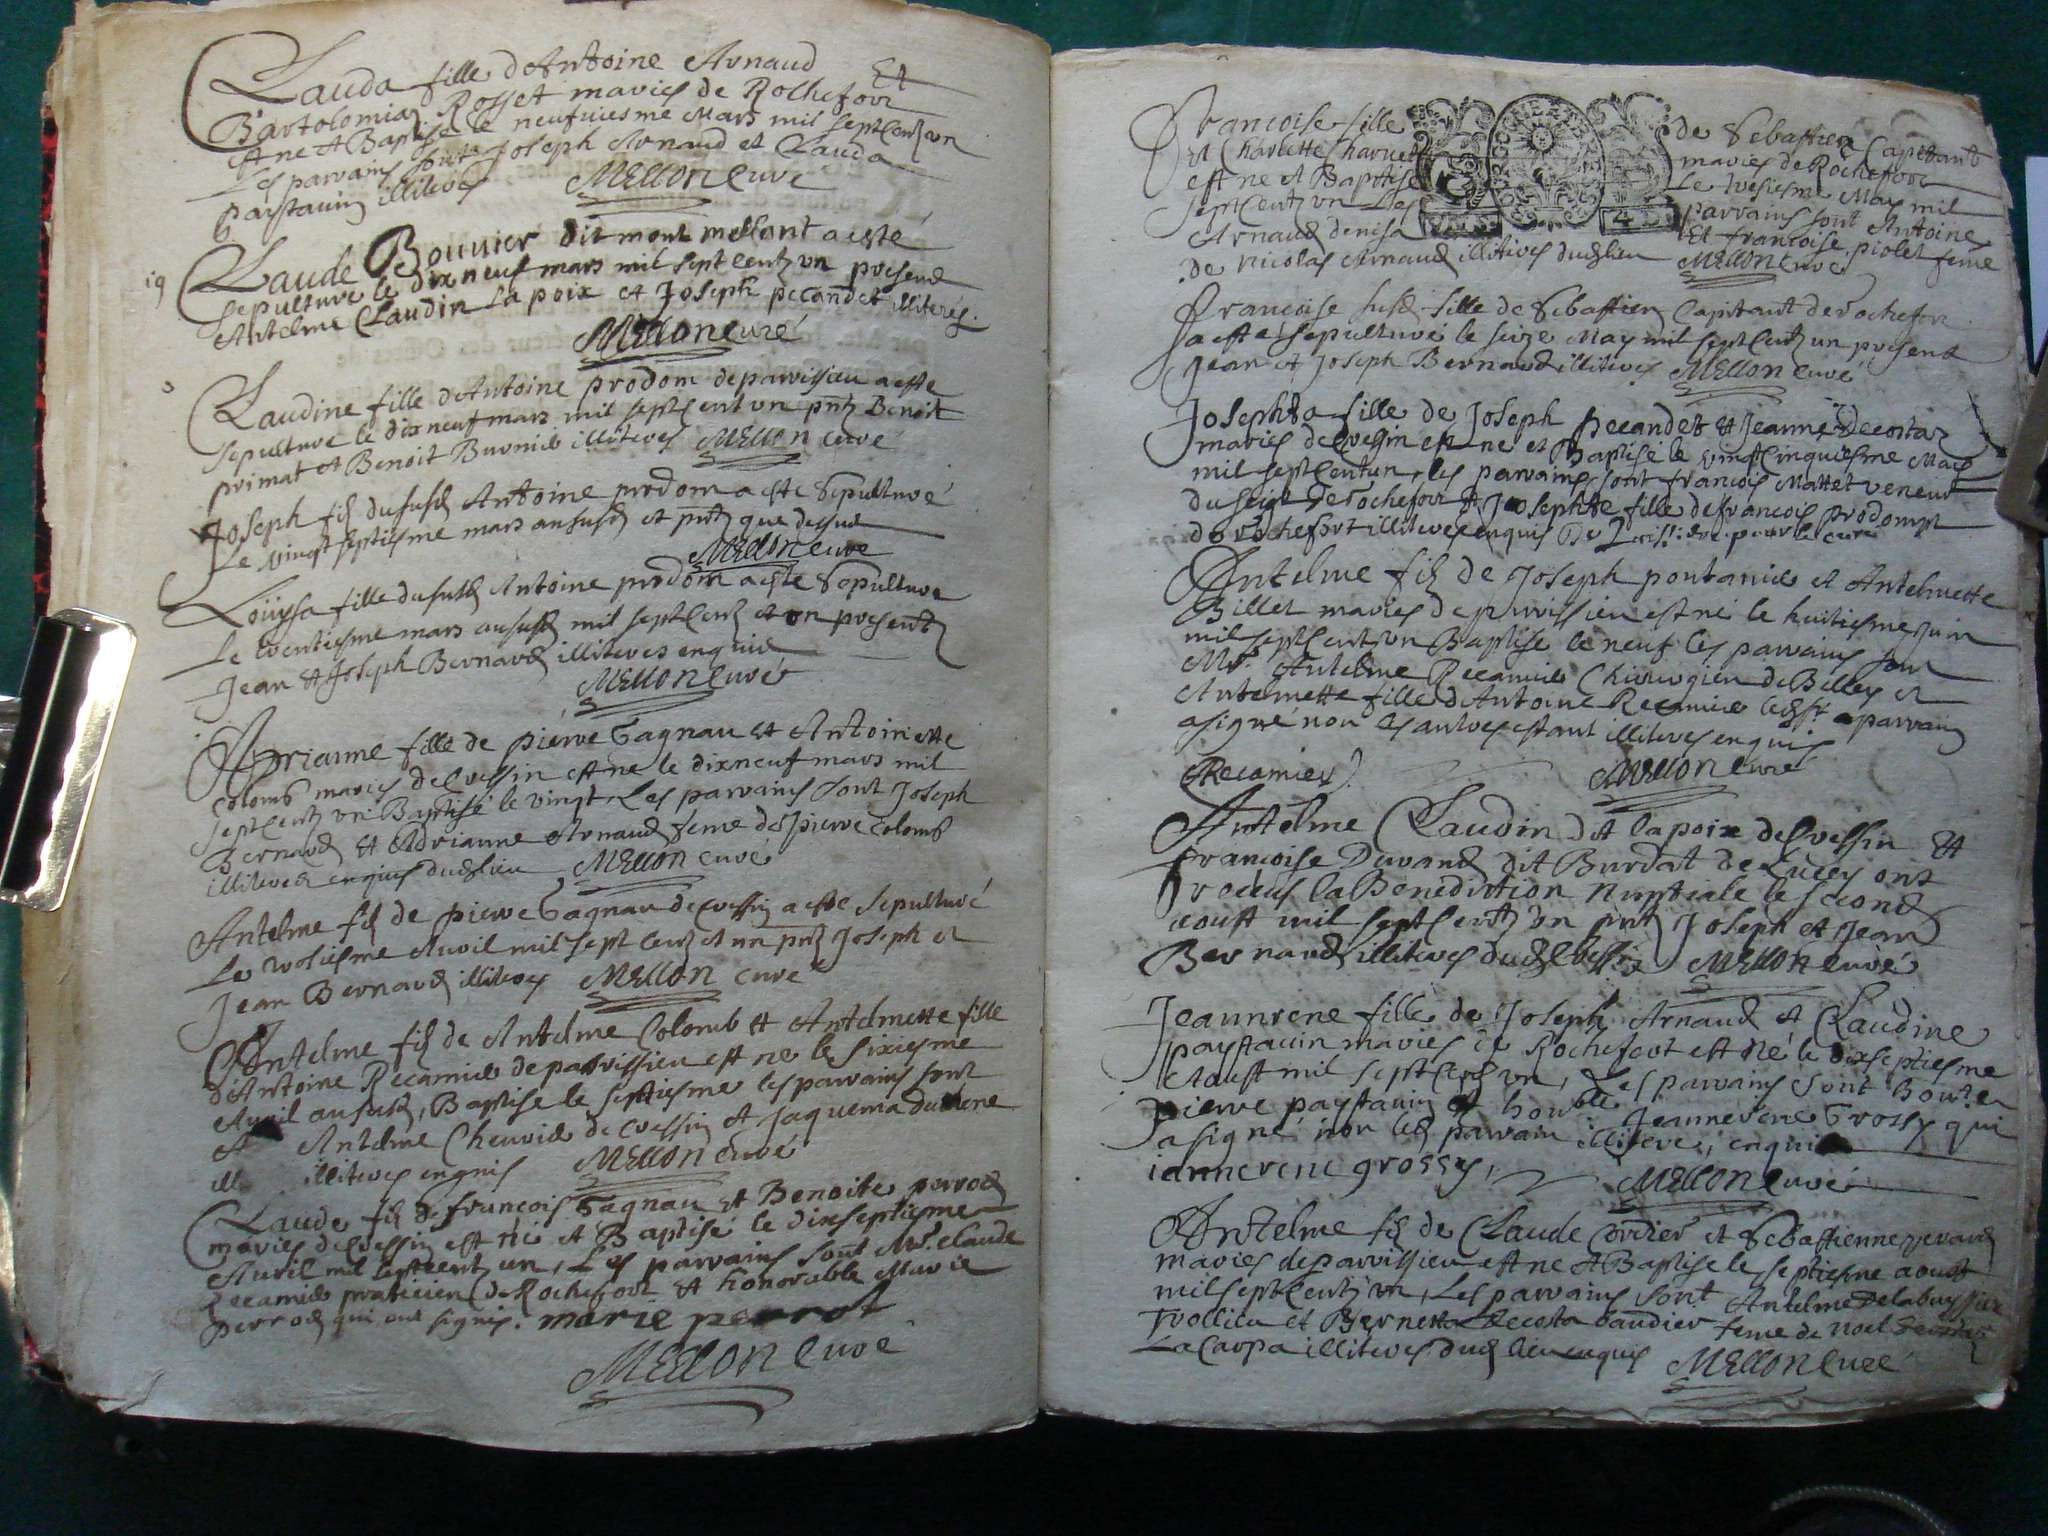 Clauda fille d'Antoine Arnaud Et
Bartolomia Rosset mariés de Rochefort
est ne et Baptisé le neufuiesme Mars mil sept centz un
Les parrains sont Joseph Arnaud et Clauda
paystauin illiteres MELLON Curé
19
Claude Bouuier dit mont mellant a esté
sepulturé le dix neuf mars mil sept centz un presend
Antelme Claudin la poix et Joseph pecandet illiterés.
MELLON curé
Claudine fille d'Antoine prodom de parrissieu a esté
sepulture le dix neuf mars mil sept cent un pntz Benoit
primat et Benoit Burnid illiteres MELLON curé
Joseph fiz du susd Antoine prodom a este Sepulturé
Le vingt septiesme mars au susd et pntz que dessus
MELLON curé
Loüysa fille du susd Antoine prodom a este Sepulture
Le trentiesme mars au susd mil sept centz et un presentz
Jean et Joseph Bernard illiteres enquis
MELLON Curé
Adrianne fille de pierre Gagnau et Antoinette
Colomb mariés de Cressin est ne le dix neuf mars mil
sept centz un Baptisé le vingt, Les parrains sont Joseph
Bernard et Adrianne Arnaud feme de pierre Colomb
illiteres enquis dud lieu MELLON Curé
Antelme fiz de pierre Gagnau de Cressin a esté sepulturé
Le troisiesme Auril mil sept centz et un pntz Joseph et
Jean Bernard illiteres MELLON curé
Antelme fiz de Antelme Colomb et Antelmette fille
d'Antoine Recamier de parrissieu est ne le sixiesme
Auril au susd, Baptisé le septiesme les parrains sont
Antelme Cheurier de Cressin et Jaquema
illiteres enquis MELLON curé
Claude fiz de françois Gagnau et Benoite perrod
mariés de Cressin est né et Baptisé le dixseptiesme
Auril mil sept centz un, Les parrains sont Mr. Claude
Recamier praticien de Rochefort et honorable Marie
perrod qui ont signés. marie perrot
MELLON Curé
Françoise fille de Sebastien Capitant
et Charlette Charuet mariés de Rochefort
est ne et Baptisé Le troisiesme May mil
sept Centz un Les parrains sont Antoine
Arnaud denisa Et françoise piolet feme
de nicolas Arnaud illiteres dud lieu MELLON Curé
Françoise susd fille de Sebastien Capitant de rochefort
a esté sepulturé le seize May mil sept centz un present
Jean et Joseph Bernard illiteres MELLON Curé
Josephta fille de Joseph pecandet et Jeanne Decostaz
mariés de Cressin est ne et Baptisé le vingt Cinquiesme May
mil sept cent un, les parrains sont françois Mattet veneur
du seigr de rochefort et Josephte fille de françois prodompt
de rochefort illiteres enquis pour le curé
Antelme fiz de Joseph pontanier et Antelmette
Billet mariés de parrissieu est né le huitiesme Juin
mil sept centz un Baptisé le neuf les parrains sont
Mr. Antelme Recamier Chirurgien de Belley et
Antelmette fille d'Antoine Recamier led sr parrain
a signé non les autres estant illiteres enquis
Recamier MELLON curé
Antelme Claudin dit la poix de Cressin et
françoise Durand dit Burdat de Lucey ont
receus la Benediction Nuptiale le second
aoust mil sept centz un pntz Joseph et Jean
Bernard illiteres dud Cressin MELLON curé
Jeanrene fille de Joseph Arnaud et Claudine
paystauin mariés de Rochefort est né le dixseptiesme
Aoust mil sept centz un, Les parrains sont
pierre paystauin et honble Jeannerene Grossy qui
a signé non led parrain illitere, enquis
iannerene grossy, MELLON Curé
Antelme fiz de Claude Cordier et Sebastienne
mariés de parrissieu est ne et Baptisé le septiesme aoust
mil sept centz un, Les parrains sont Antelme Delabuyssiere
Trollieu et Bernetta Decosta baudier feme de noel
La Carpa illiteres dud lieu enquis MELLON Curé